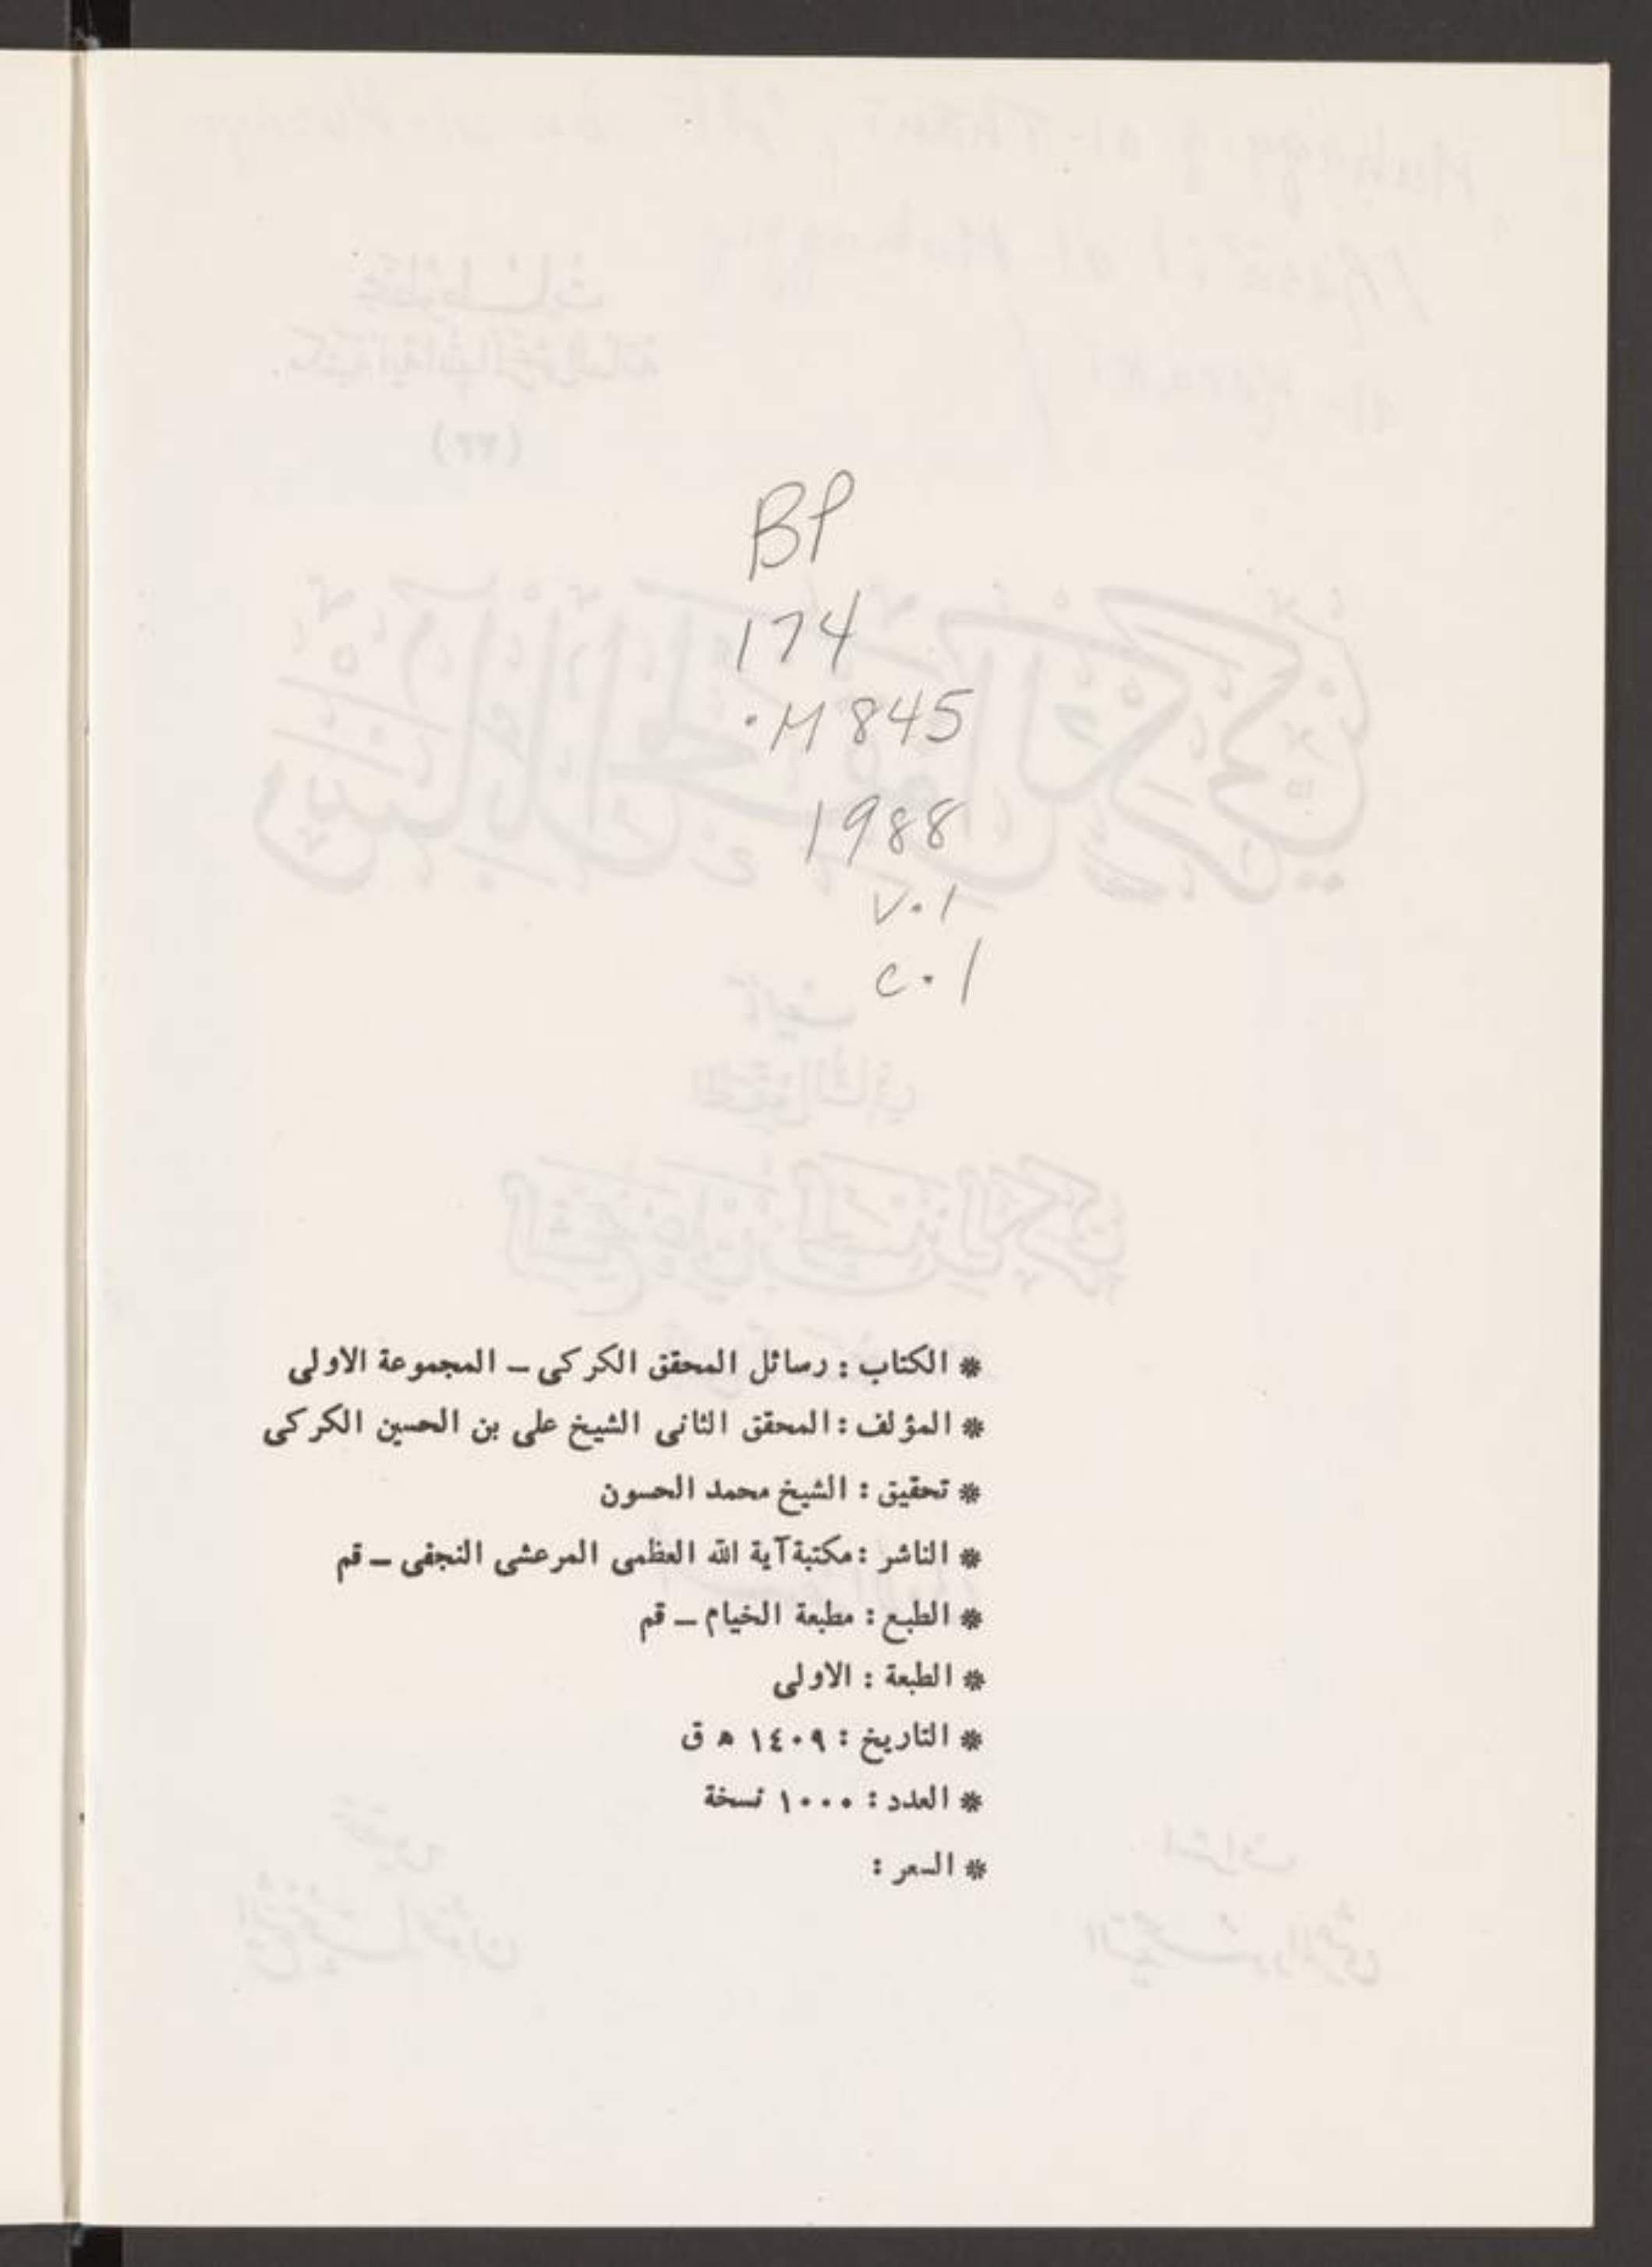 BP
174
.M845
1988
v.1
c.1
* الكتاب : رسائل المحقق الكركى – المجموعة الاولى
* المؤلف : المحقق الثانى الشيخ على بن الحسين الكركى
* تحقيق : الشيخ محمد الحسون
* الناشر : مكتبة آية الله العظمى المرعشى النجفى – قم
* الطبع : مطبعة الخيام – قم
* الطبعة : الاولى
* التاريخ : ١٤٠٩ ه ق
* العدد : ١٠٠٠ نسخة
* السعر :